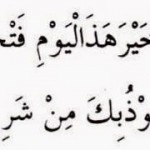 خَيْرَ هَذَا الْيَوْمِ فَتْحَ
وْذُبِكَ مِنْ شَرِ